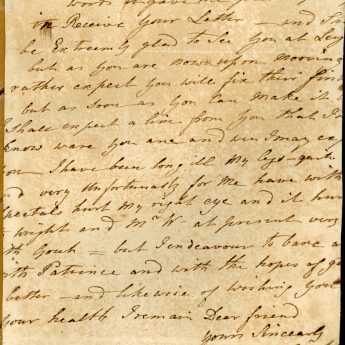 in Receive your Letter – and I
be Extremly glad to See You at
but as you are now upon mooving
rather expect you will fix their first
but as soon as You Can make it
I Shall expect a line from you that I
know ware you are and wen I may ex
you – I have been long ill my legs
and very Unfortunatly for Me have with
Spectals hurt my right eye and it hur
to wright and Mr W at present very
with Gout – but I endeavour to bare
with Patience and with the hopes of g
better – and likewise of wishing You
Your health I remain Dear friend
yours Sincearly